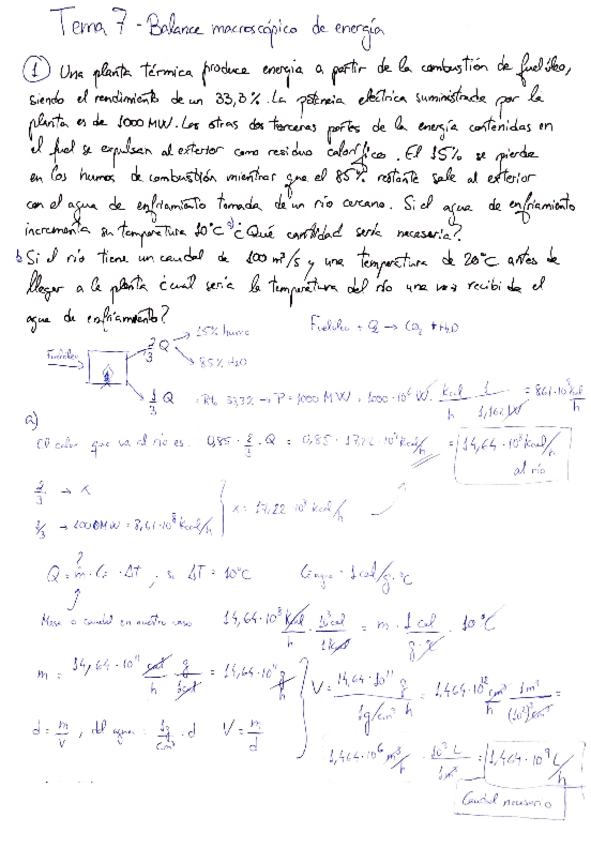 Tema 7 - Balance macroscópico de energía
① Una planta térmica produce energía a partir de la combustión de fuelóleo,
siendo el rendimiento de un 33,3%. La potencia eléctrica suministrada por la
planta es de 1000 MW. Las otras dos terceras partes de la energía contenidas en
el fuel se expulsan al exterior como residuo calorífico. El 15% se pierde
en los humos de combustión mientras que el 85% restante sale al exterior
con el agua de enfriamiento tomada de un río cercano. Si el agua de enfriamiento
incrementa su temperatura 10°C a) ¿Qué cantidad sería necesaria?
b) Si el río tiene un caudal de 100 m³/s y una temperatura de 20°C antes de
llegar a la planta ¿cuál sería la temperatura del río una vez recibida el
agua de enfriamiento?
Fuelóleo + O₂ → CO₂ + H₂O
15% humo
Fuelóleo 2/3 Q
85% H₂O
1/3 Q = Rto 33,3% → P = 1000 MW = 1000·10⁶ W · Kcal/h · 1/1,162 W = 8,61·10⁸ Kcal/h
a)
El calor que va al río es: 0,85 · 2/3 · Q = 0,85 · 17,22 · 10⁸ Kcal/h = 14,64·10⁸ Kcal/h
al río
2/3 → x
1/3 → 1000 MW = 8,61·10⁸ Kcal/h x = 17,22·10⁸ Kcal/h
?
Q = m · Ce · ΔT ; si ΔT = 10°C C agua = 1 cal/g·°C
Masa o caudal en nuestro caso 14,64·10⁸ Kcal/h · 10³ cal/1 Kcal = m · 1 cal/g·°C · 10°C
m = 14,64·10¹¹ cal/h · g/1 cal = 14,64·10¹¹ g/h V = 14,64·10¹¹ g/h / 1 g/cm³ = 1,464·10¹² cm³/h · 1 m³/(10²)³ cm³ =
d = m/V , del agua = 1g/cm³ · d V = m/d
1,464·10⁶ m³/h · 10³ L/1 m³ = 1,464·10⁹ L/h
Caudal necesario